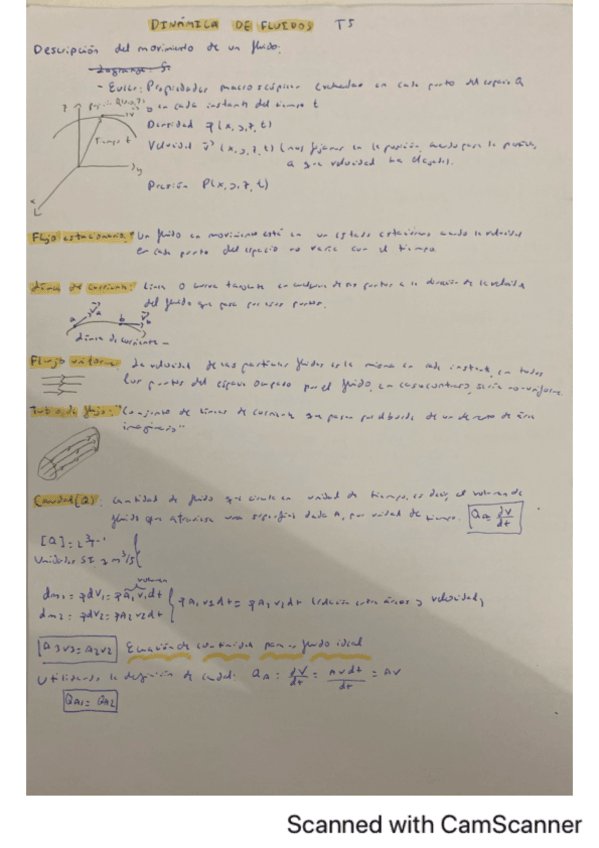 DINÁMICA DE FLUIDOS T5
Descripción del movimiento de un fluido.
- Euler: Propiedades macroscópicas en cada punto del espacio Q
o en cada instante del tiempo t
Tiempo t
Densidad ρ(x,y,z,t)
Velocidad v (x,y,z,t)
a que velocidad ha
Presión P(x,y,z,t)
Flujo estacionario: "Un fluido en movimiento está en un estado estacionario cuando la velocidad
en cada punto del espacio no varía con el tiempo
Línea de corriente: Línea o curva tangente en cualquiera de sus puntos a la dirección de la velocidad
del fluido que pasa por esos puntos.
a b
Línea de corriente
Flujo uniforme: La velocidad de las partículas fluidas es la misma en cada instante, en todos
los puntos del espacio ocupado por el fluido, en caso contrario, sería no-uniforme
Tubo de flujo: "Conjunto de líneas de corriente que pasan por el borde de un elemento de área
imaginario"
Caudal (Q): Cantidad de fluido que circula en unidad de tiempo, es decir, el volumen de
fluido que atraviesa una superficie dada A, por unidad de tiempo. QA = dV/dt
[Q] = L³T⁻¹
Unidades SI: m³/s
volumen
dm1 = ρdV1 = ρA1v1dt
dm2 = ρdV2 = ρA2v2dt
ρA2v2dt = ρA1v1dt (relación entre áreas y velocidad)
A1v1 = A2v2 Ecuación de continuidad para fluido ideal
Utilizando la definición de caudal: QA = dV/dt = Avdt/dt = Av
QA1 = QA2
Scanned with CamScanner